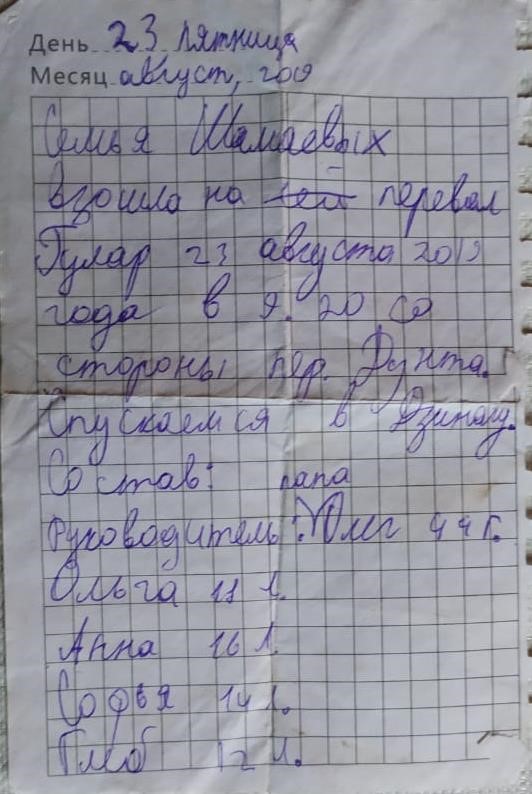 День 23 пятница
Месяц август, 2019
Семья Шамаевых
взошла на перевал
Гулар 23 августа 2019
года в 9.20 со
стороны пер. Дунта.
Спускаемся в Дзинагу.
Состав: папа
Руководитель: Олег 44 г.
Ольга 11 л.
Анна 16 л.
Софья 14 л.
Глеб 12 л.